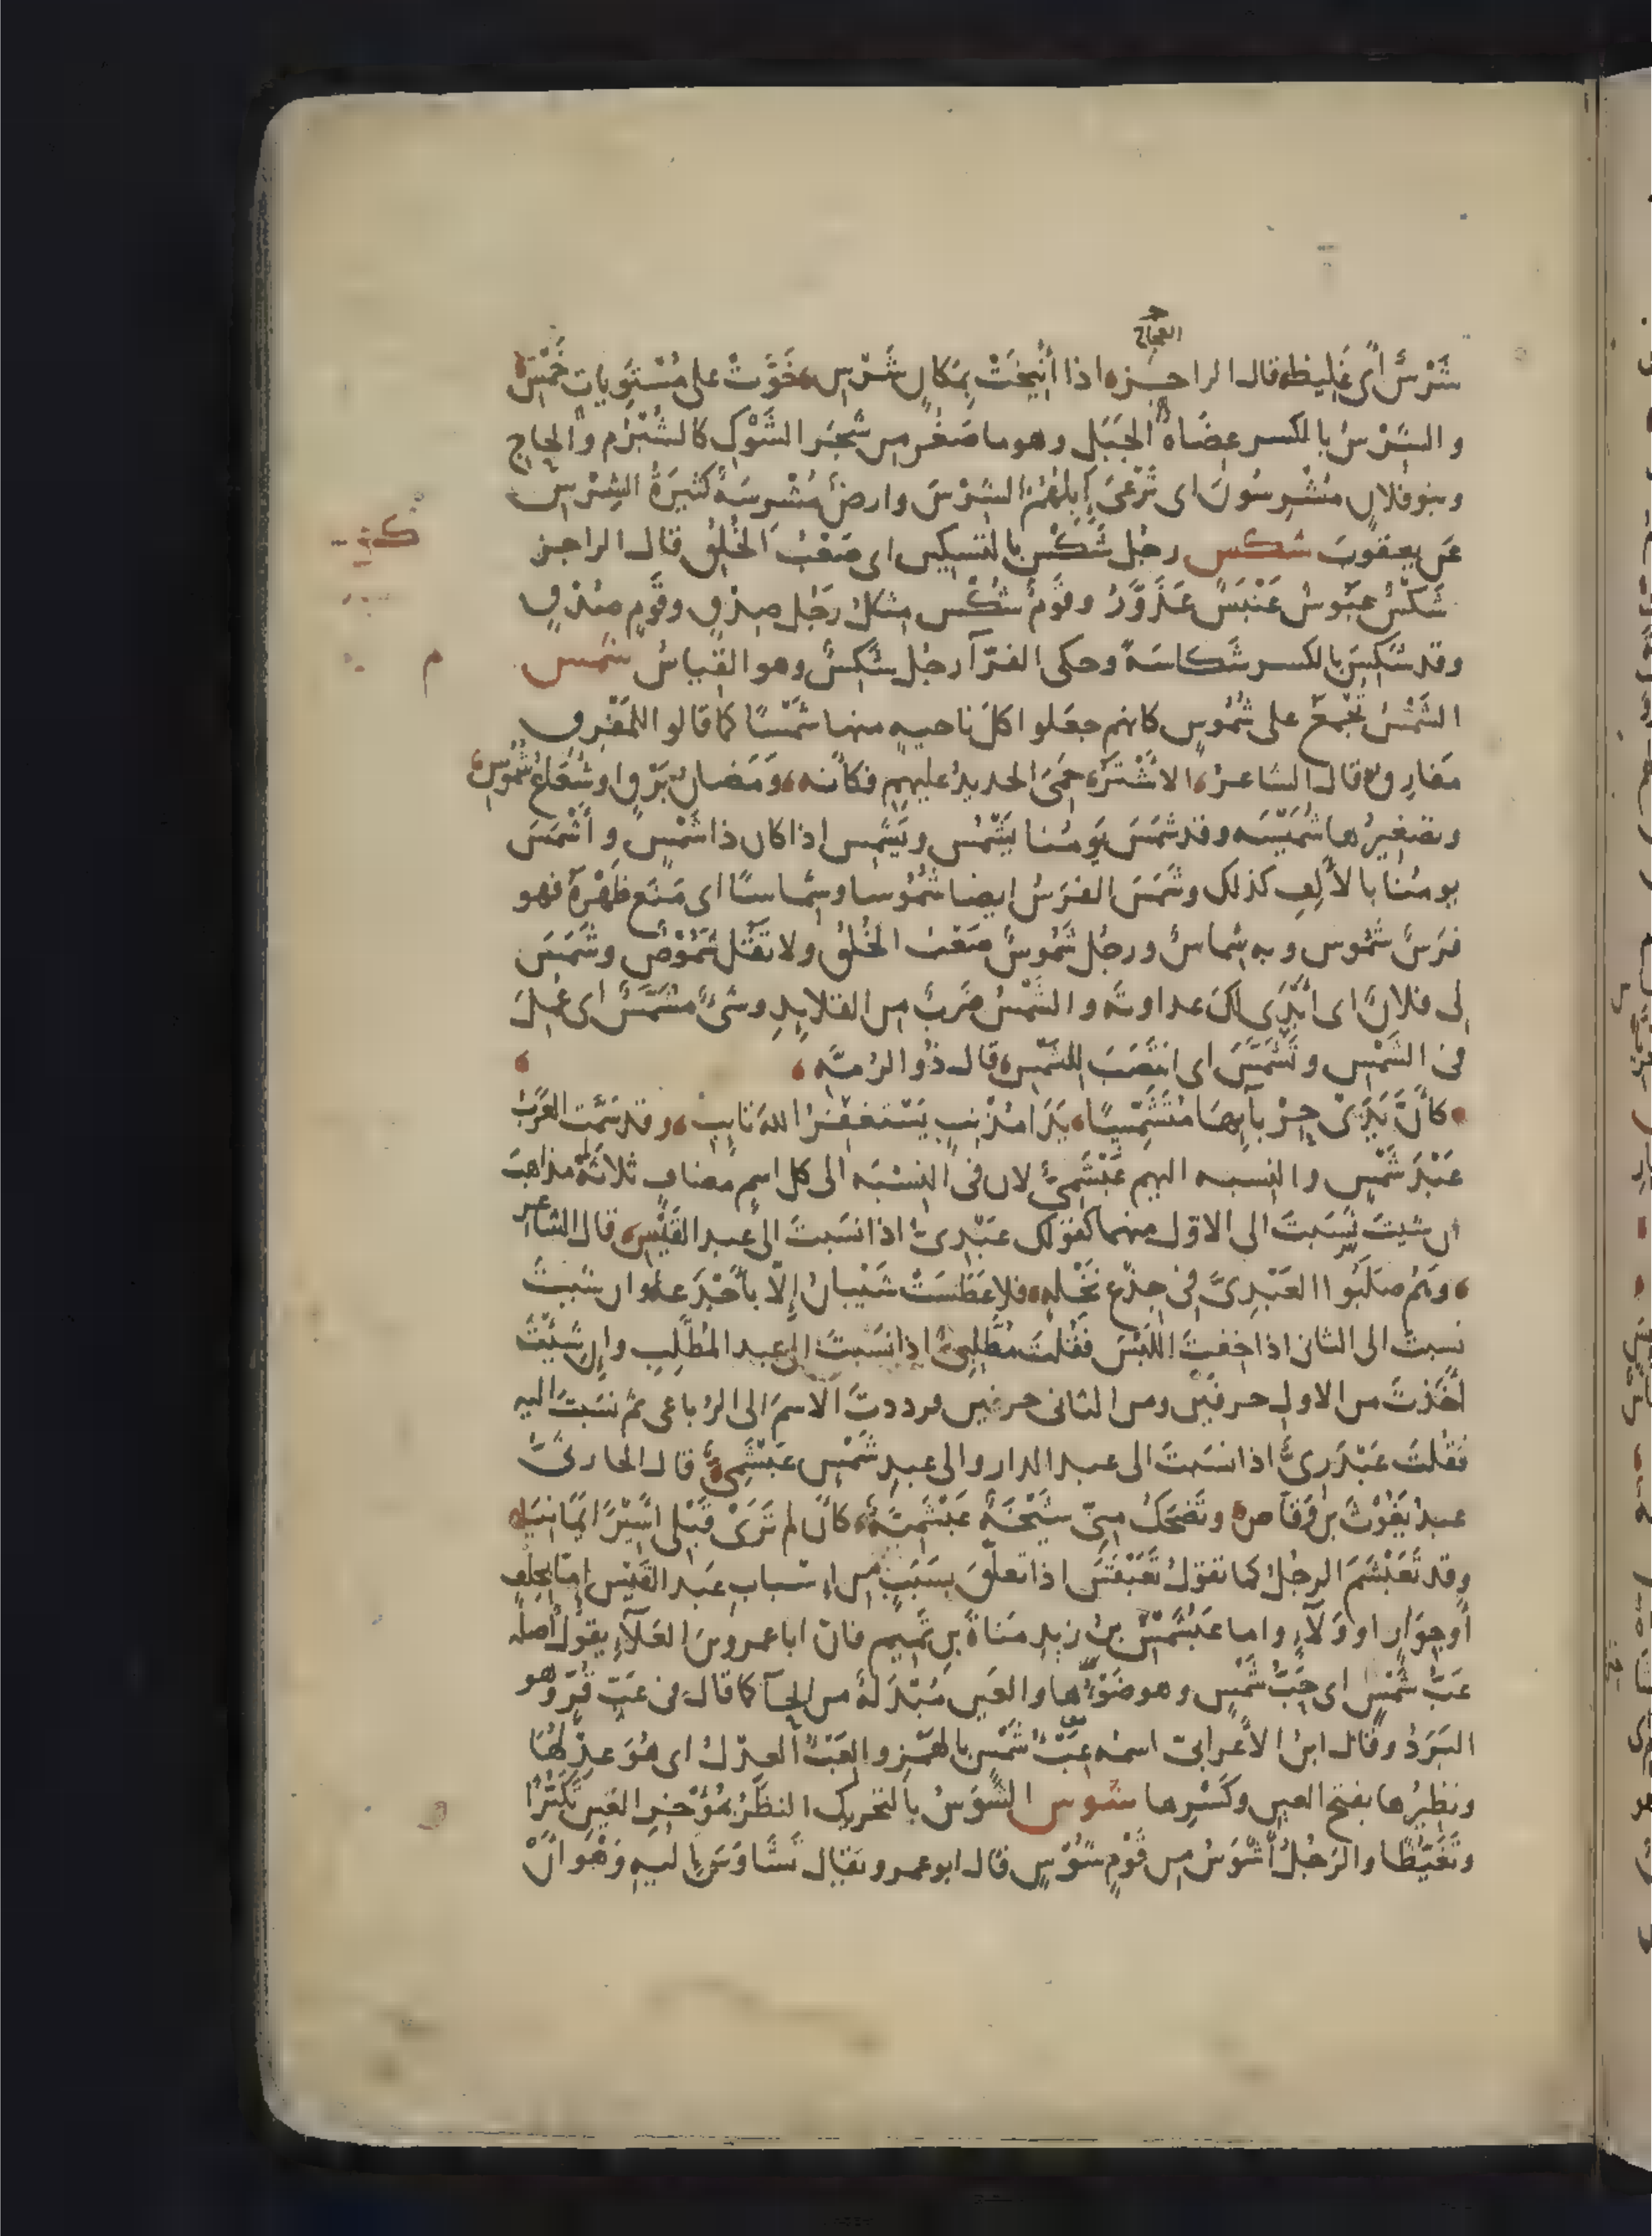 العجاج
شَرْسٌ أى غَلِيظه قال الراجز اذا أُنِيخَتْ بِمَكانٍ شَرْسِ خَوَّتْ على مُسْتَوِياتٍ خَمْسِ
والشِرْسُ بالكسر عِضَاهُ الجَبَل وهو ما صَغُر من شَجَر الشَوْكِ كالشُبْرُمِ والحاجِ
وبنو فلانٍ مُشْرِسُونَ اى تَرْعَى إبلهُمْ الشِرْسَ وارضٌ مُشْرِسَةٌ كثيرَةُ الشِرْسِ
عَن يعقوبَ شكس رجُل شَكْسٌ بالتسكين اى صَعْبُ الخُلُقِ قال الراجز
شَكْسٌ عَبُوسٌ عَنْبَسٌ عَذَوَّرُ وقَومٌ شُكْسٌ مثالُ رَجُلٍ صَدْقٍ وقَومٍ صُدْقٍ
وقد شَكِسَ بالكسر شَكاسَةً وحكى الفرّآ رجُل شَكِسٌ وهو القياسُ شمس
الشَمْسُ تُجْمَعُ على شُمُوسٍ كانهم جعَلوا كلَ ناحيهٍ منها شَمْسًا كما قالوا للمَفْرِق
مَفارِق قال الشاعر الاشْتَر حَمِىَ الحديدُ عليهِم فكأنه وَمَضانُ بَرْقٍ او شُعَاعُ شُمُوسِ
وتصغيرُها شُمَيْسَه وقد شَمَسَ يَومُنا يَشْمُسُ ويَشْمِس اذا كان ذا شَمْسٍ وأَشْمَسَ
يومُنا بالألِفِ كذلك وشَمَسَ الفرَسُ ايضا شُمُوسا وشِماسًا اى مَنَع ظَهْرَهُ فهو
فرَسٌ شَمُوس وبه شِماسٌ ورجُل شَمُوسٌ صَعْبُ الخُلُقِ ولا تَقُل شَمُوصٌ وشَمَسَ
لى فلانٌ اى ابْدَى لكَ عداوتَه والشَمْسُ ضَربٌ من القلايدِ وشىٌ مُشَمَّسٌ اى عُمِلَ
فى الشَمْسِ وتَشَمَّسَ اى انتَصَبَ للشَمْسِ قال ذُو الرُمَّةِ
كأنَّ يَدَىْ حِرْبآيها مُتَشَمِّسًا يَدَا مُذْنِبٍ يَسْتَغفِرُ اللهَ تايب وقد سَمَّت العَرَبُ
عَبْدَ شَمْسٍ والنسبه اليهم عَبْشَمِىٌ لان فى النِسْبَه الى كل اسمٍ مضاف ثلاثَةُ مذاهبَ
ان شيتَ نَسَبتَ الى الاوّل منهما كقولك عَبْدِىٌ اذا نسَبتَ الى عبد القَيْسِ قال الشاعر
وهُمُ صلَبُوا العَبْدِىَّ فى جِذْعِ نَخْلِهٍ فلا عَطَسَتْ شَيْبانُ إلّا بأَجْدَعا وان شيتَ
نسبتَ الى الثانى اذا خِفتَ اللَبْسَ فقُلتَ مُطَّلِبِىٌ اذا نَسَبتَ الى عبد المُطَّلِب وإن شيْتَ
أخَذتَ من الاول حرفَيْن ومن الثانى حرفين فرددتَ الاسمَ الى الرُباعى ثم نَسَبتَ اليه
فقُلتَ عَبْدَرِىٌّ اذا نسَبتَ الى عبد الدار والى عبدِ شَمْسٍ عَبْشَمِىٌّ قال الحارثىُّ
عبدُ يَغُوثَ بن وَقاصٍ وتَضحَكُ مِنّى شَيْخَةٌ عَبْشَمِيَّةٌ كأن لم تَرَىْ قَبْلى اسِيرًا يَمانِيَا
وقد تَعَبْشَمَ الرجُلُ كما تقولُ تَعَبْقَسَ اذا تعلّقَ بسَبَبٍ من اسباب عَبد القَيْس امّا بحِلْفٍ
أو جِوَارٍ او وَلآءٍ واما عَبْشَمْسُ بن زيدِ مَناةَ بن تَمِيم فان ابا عمرو بنَ العَلآءِ يقولُ أصلُه
عَبُّ شَمْسٍ اى حَبُّ شَمْسٍ وهو ضَوْءُها والعَين مُبْدَلَةٌ من الحآ كما قال فى عَبّ قُرٍّ وهو
البَرَدُ وقال ابن الأعرابىّ اسمُه عِبْءُ شَمْسٍ بالهَمْز والعِبْءُ العِدْلُ اى هُوَ عِدْلُهَا
ونظِيرُها بفتح العين وكَسْرِها شوس الشَوَسُ بالتحريك النظَرُ بمُؤْخِرِ العَينِ تَكَبُّرًا
وتَغَيُّظًا والرَجُلُ أشْوَسُ مِن قَوْمٍ شُوْسٍ قال ابو عمرو يقال تَشَاوَسَ إليهِ وَهْوَ أنْ